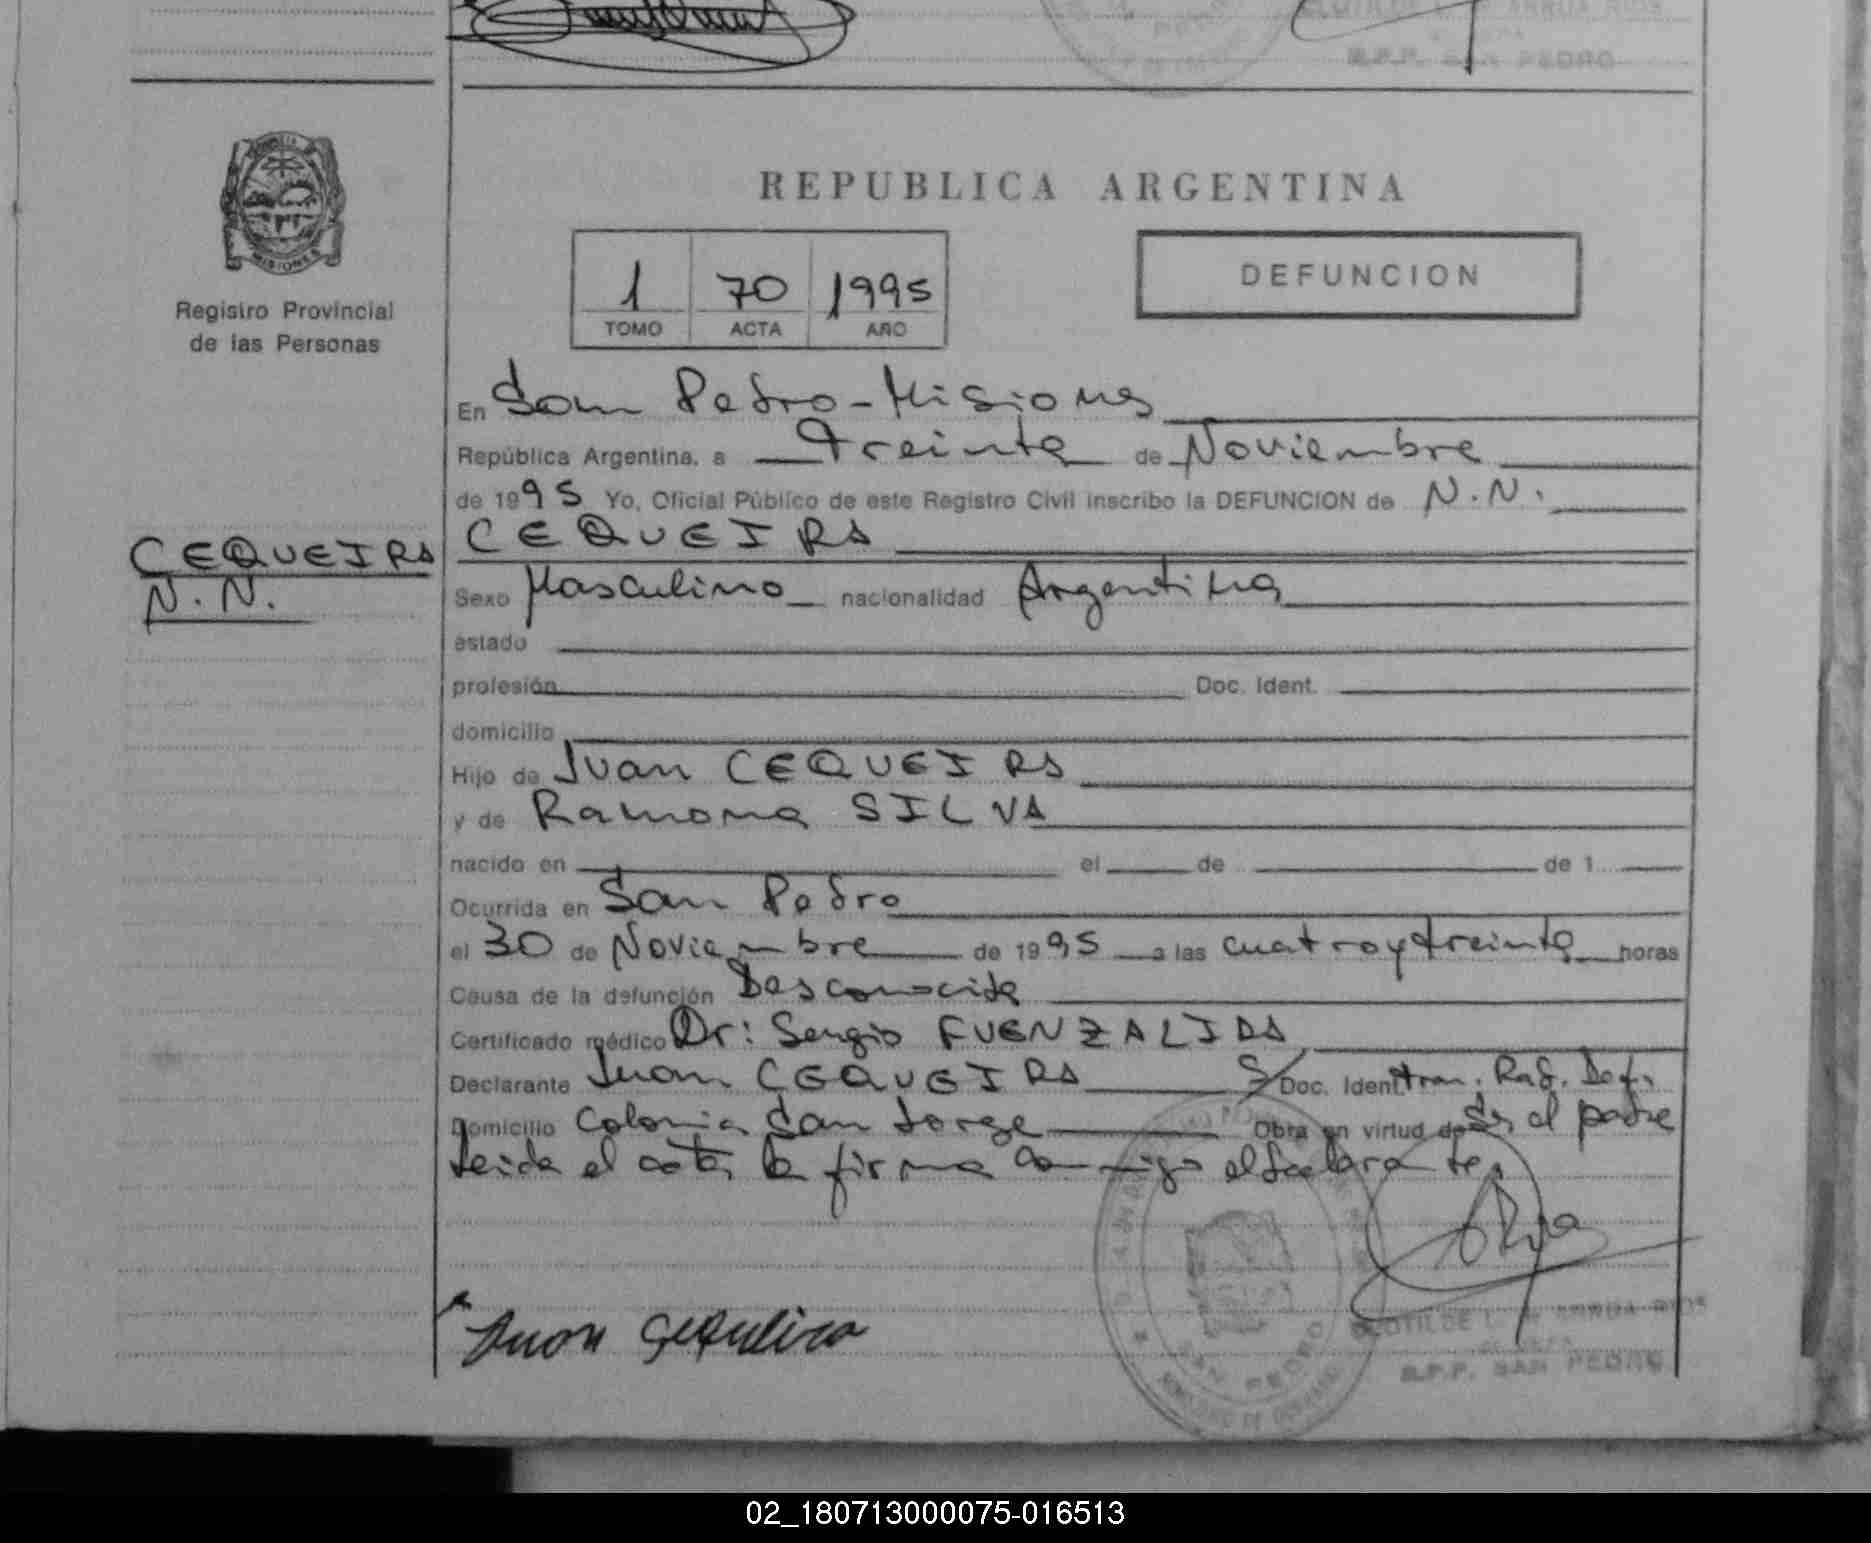 R.P.P. SAN PEDRO
MISIONES
Registro Provincial
de las Personas
REPUBLICA ARGENTINA
1 70 1995
TOMO ACTA AÑO
DEFUNCION
En San Pedro-Misiones
República Argentina, a Treinta de Noviembre
de 1995 Yo, Oficial Público de este Registro Civil inscribo la DEFUNCION de N.N.
CEQUEIRA
CEQUEIRA
N.N.
Sexo Masculino nacionalidad Argentina
estado
profesión Doc. Ident.
domicilio
Hijo de Juan CEQUEIRA
y de Ramona SILVA
nacido en el de de 1
Ocurrida en San Pedro
el 30 de Noviembre de 1995 a las cuatro y treinta horas
Causa de la defunción Desconocida
Certificado médico Dr: Sergio FUENZALIDA
Declarante Juan CEQUEIRA S/ Doc. Ident.
Domicilio Colonia San Jorge Obra en virtud de el padre
Leida el acta, la firma conmigo el declarante
Juan Cequeira
SAN PEDRO
CLOTILDE L. de ARRUA RIOS
R.P.P. SAN PEDRO
02_180713000075-016513